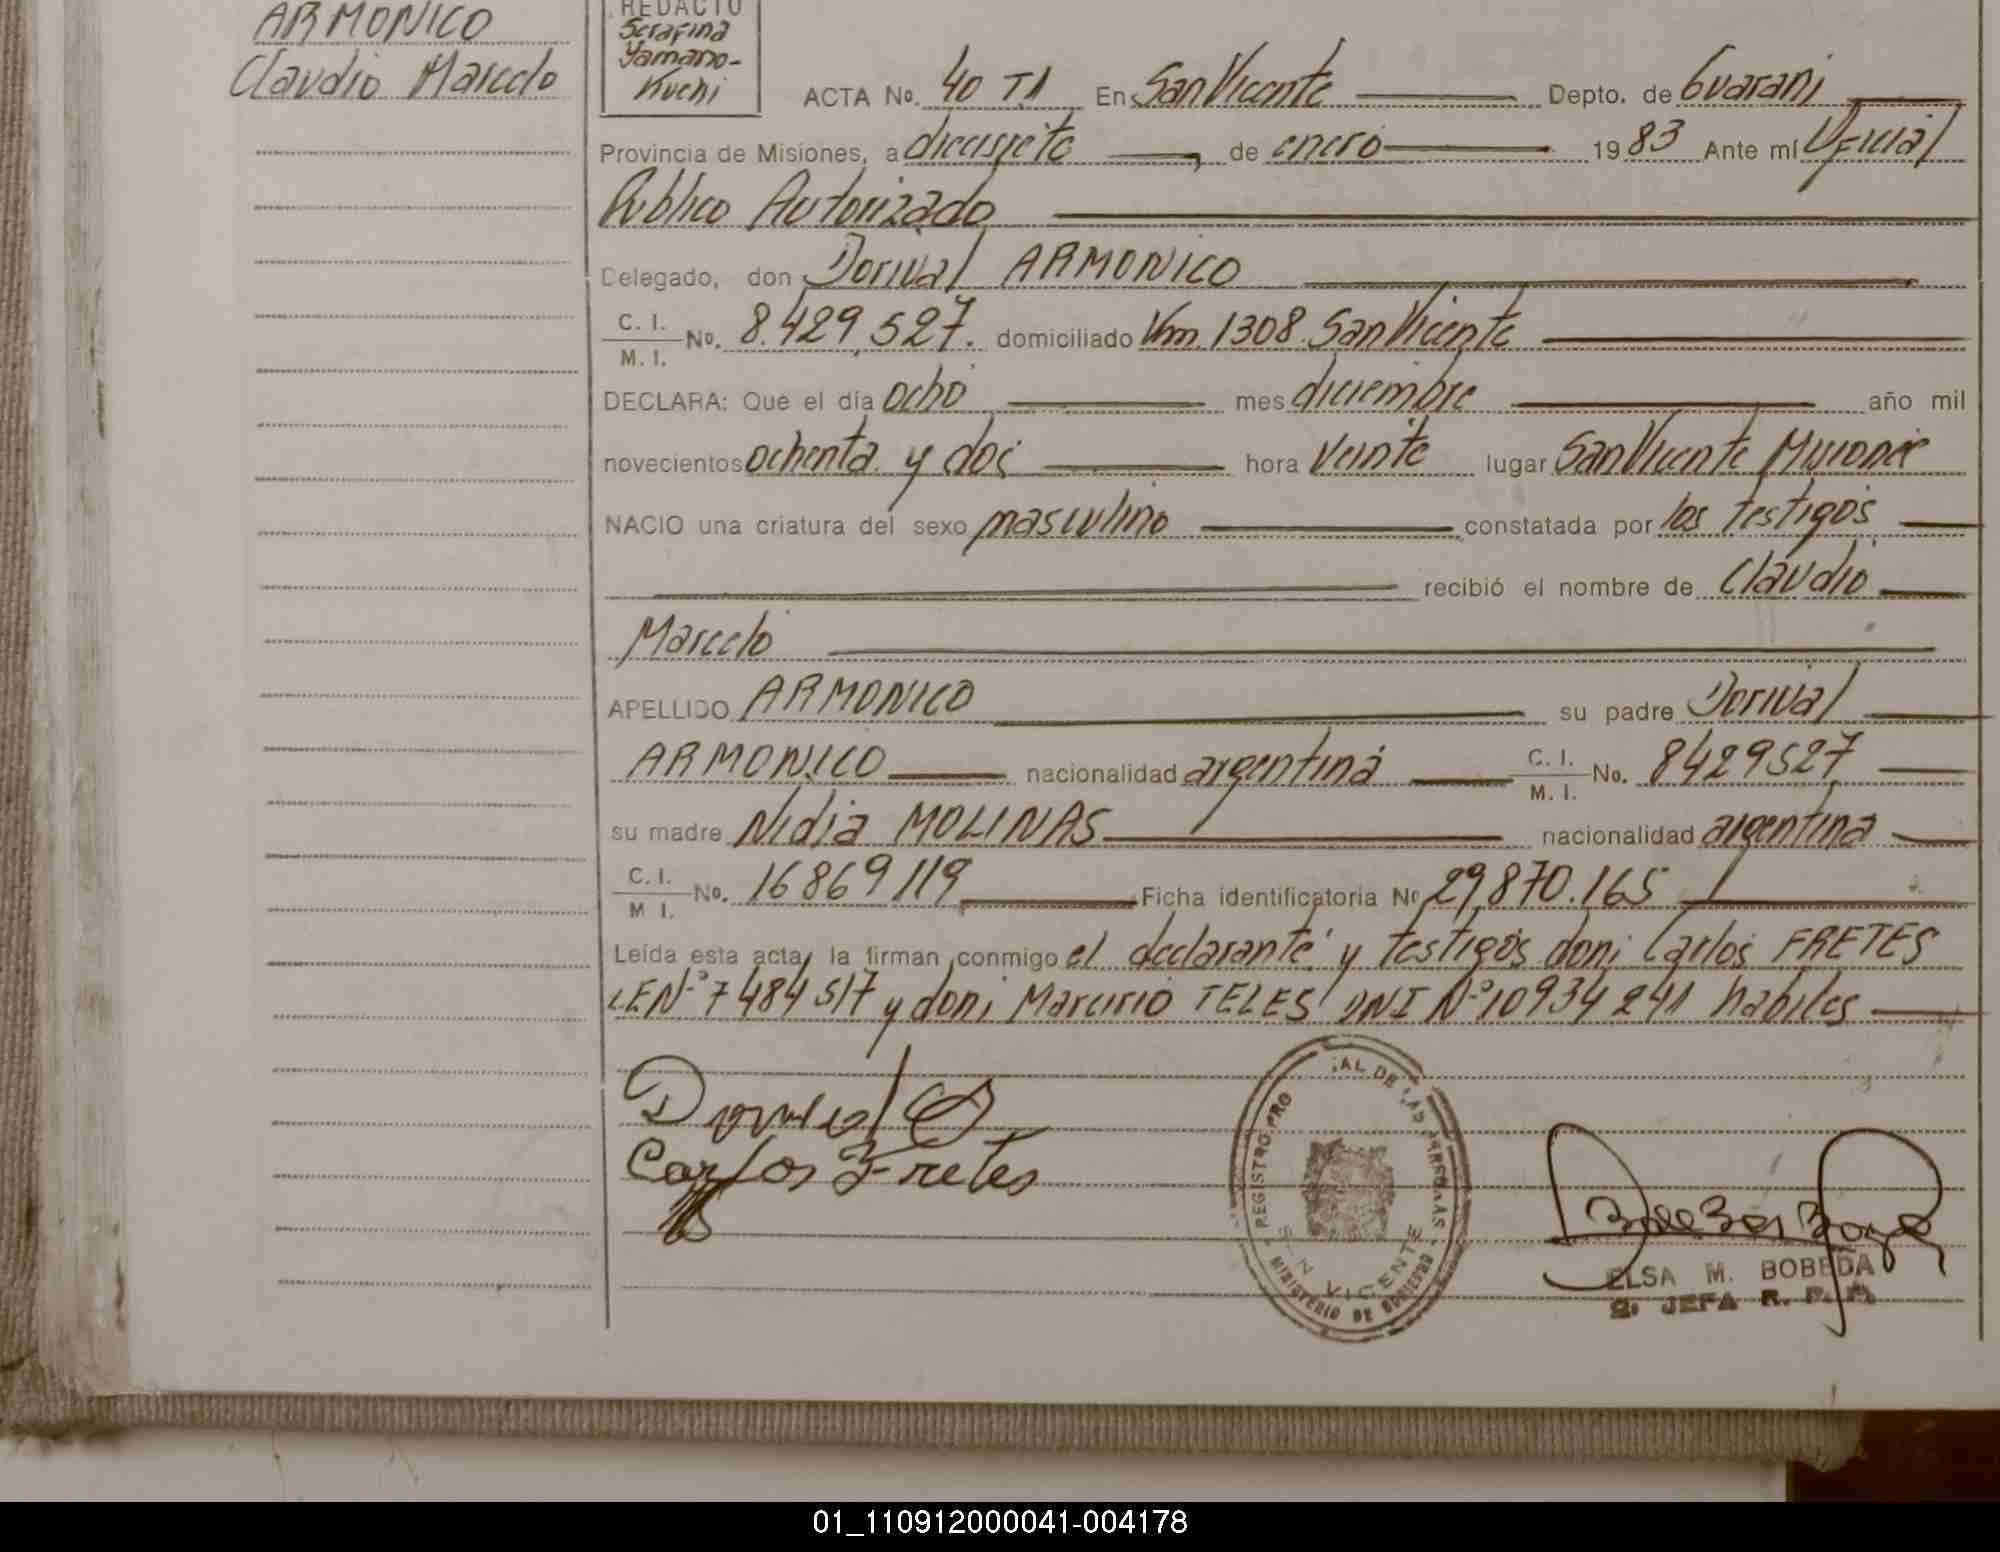 ARMONICO
Claudio Marcelo
REDACTO
Serafina
Yamano-
Kuchi
ACTA No. 40 T1 En San Vicente Depto. de Guarani
Provincia de Misiones, a diecisiete de enero 1983 Ante mí Oficial
Publico Autorizado
Delegado, don Dorival ARMONICO
C. I.
M. I. No. 8.429.527. domiciliado Km. 1308 San Vicente
DECLARA: Que el día ocho mes diciembre año mil
novecientos ochenta y dos hora veinte lugar San Vicente Misiones
NACIO una criatura del sexo masculino constatada por los testigos
recibió el nombre de Claudio
Marcelo
APELLIDO ARMONICO su padre Dorival
ARMONICO nacionalidad argentina C. I.
M. I. No. 8429527
su madre Nidia MOLINAS nacionalidad argentina
C. I.
M I. No. 16869119 Ficha identificatoria No 29.870.165
Leída esta acta, la firman conmigo el declarante y testigos don: Carlos FRETES
LE Nº 7484517 y don: Marcirio TELES DNI Nº 10934241 habiles
Carlos Fretes
REGISTRO PRO AL DE LAS PERSONAS
SAN VICENTE
MINISTERIO DE GOBIERNO
ELSA M. BOBEDA
2º JEFA R. P. P.
01_110912000041-004178